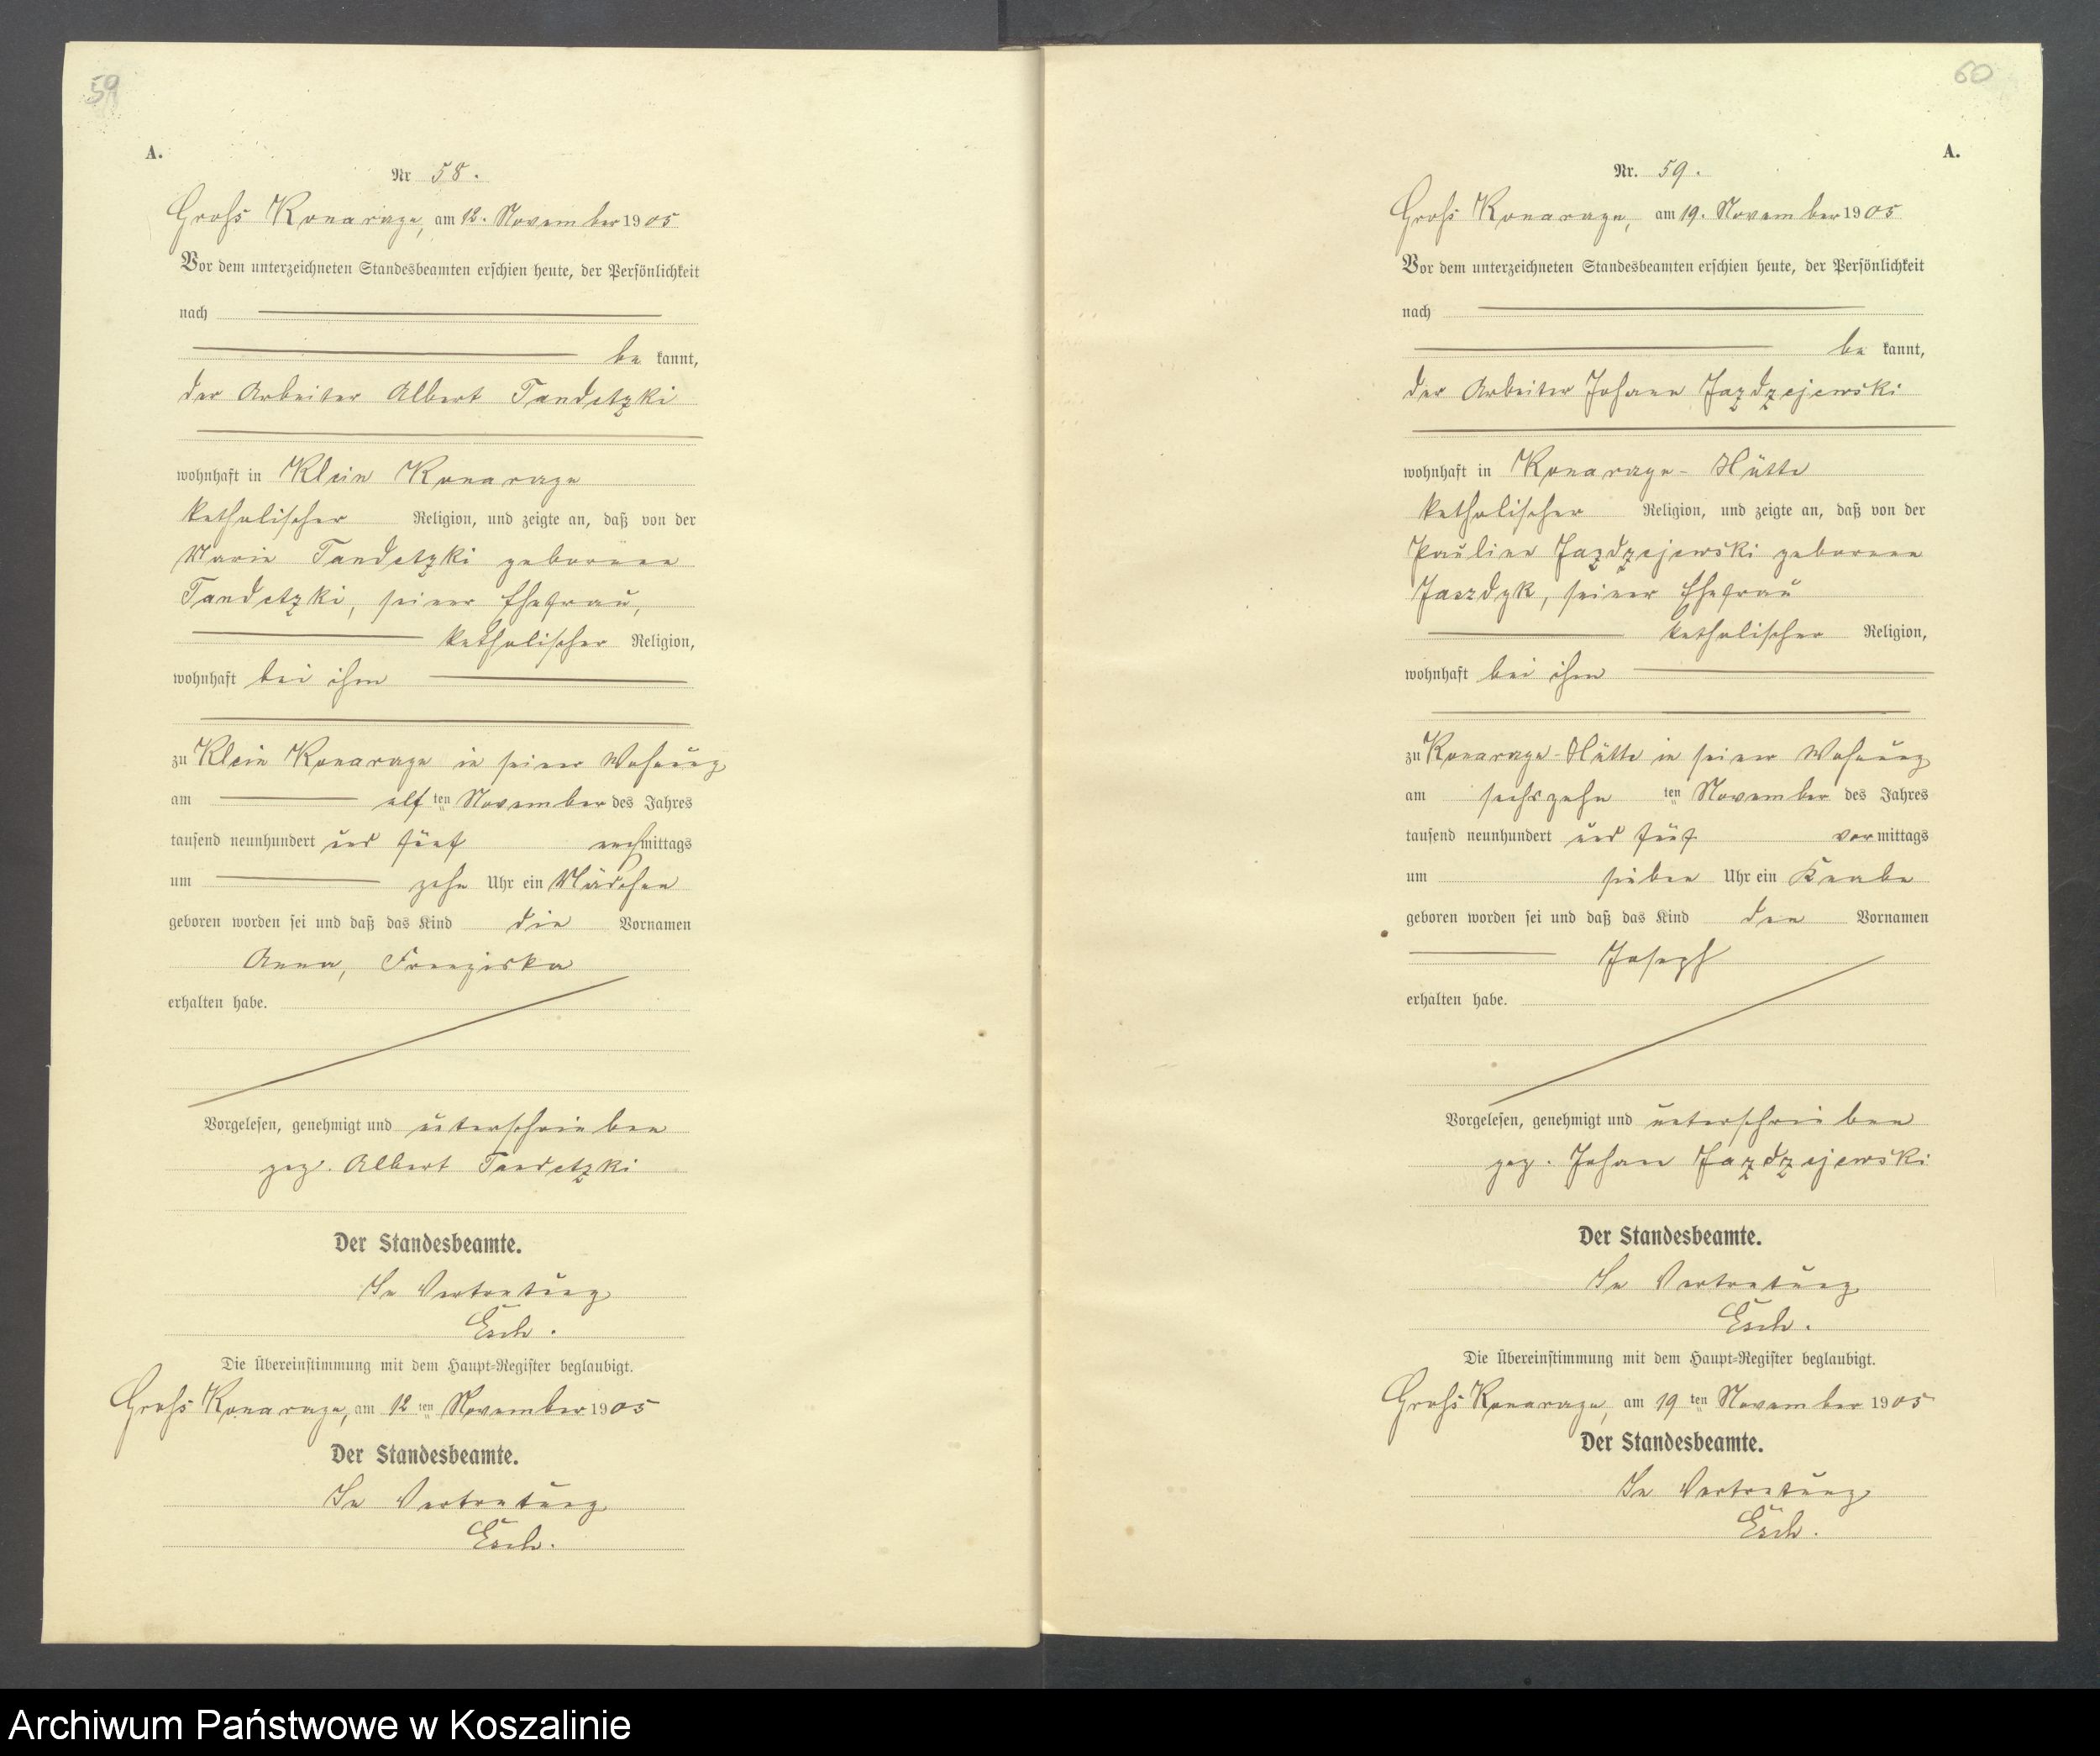 59
A.
Nr 58.
Groß Konarzyn, am 12. November 1905
Vor dem unterzeichneten Standesbeamten erschien heute, der Persönlichkeit
nach
be kannt,
der Arbeiter Albert Tandetzki
wohnhaft in Klein Konarzyn
katholischer Religion, und zeigte an, daß von der
Marie Tandetzki geborenen
Tandetzki, seiner Ehefrau,
katholischer Religion,
wohnhaft bei ihm
zu Klein Konarzyn in seiner Wohnung
am elf ten November des Jahres
tausend neunhundert und fünf nachmittags
um zehn Uhr ein Mädchen
geboren worden sei und daß das Kind die Vornamen
Anna, Franziska
erhalten habe.
Vorgelesen, genehmigt und unterschrieben
gez. Albert Tandetzki
Der Standesbeamte.
In Vertretung
Esch.
Die Übereinstimmung mit dem Haupt-Register beglaubigt.
Groß Konarzyn, am 12 ten November 1905
Der Standesbeamte.
In Vertretung
Esch.
60
A.
Nr. 59.
Groß Konarzyn, am 19. November 1905
Vor dem unterzeichneten Standesbeamten erschien heute, der Persönlichkeit
nach
be kannt,
der Arbeiter Johann Jazdzejewski
wohnhaft in Konarzyn-Hütte
katholischer Religion, und zeigte an, daß von der
Pauline Jazdzejewski geborenen
seiner Ehefrau
katholischer Religion,
wohnhaft bei ihm
zu Konarzyn-Hütte in seiner Wohnung
am sechszehn ten November des Jahres
tausend neunhundert und fünf vormittags
um sieben Uhr ein Knabe
geboren worden sei und daß das Kind den Vornamen
Joseph
erhalten habe.
Vorgelesen, genehmigt und unterschrieben
gez. Johann Jazdzejewski
Der Standesbeamte.
In Vertretung
Esch.
Die Übereinstimmung mit dem Haupt-Register beglaubigt.
Groß Konarzyn, am 19 ten November 1905
Der Standesbeamte.
In Vertretung
Esch.
Archiwum Państwowe w Koszalinie